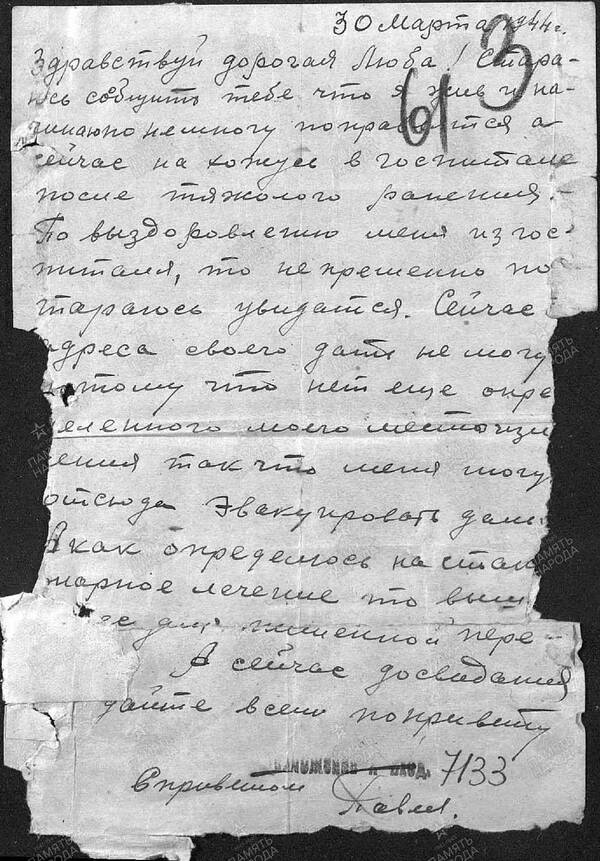 30 Марта 1944 г.
613
Здравствуй дорогая Люба! Стара-
юсь сообщить тебе что я жив и на-
чинаю немногу поправлятся а
сейчас нахожусь в госпитале
после тяжолого ранения.-
По выздоровлению меня из гос-
питаля, то непременно по
стараюсь увидатся. Сейчас
адреса своего дать не могу
потому что нет еще опре
деленного моего место
жения так что меня могу
отсюда эвакуировать даль
А как определюсь на стац
нарное лечение то выш
для писменной пере-
А сейчас досвидания
дайте всем попривету
7133
С приветом
Павел.
ПАМЯТЬ НАРОДА